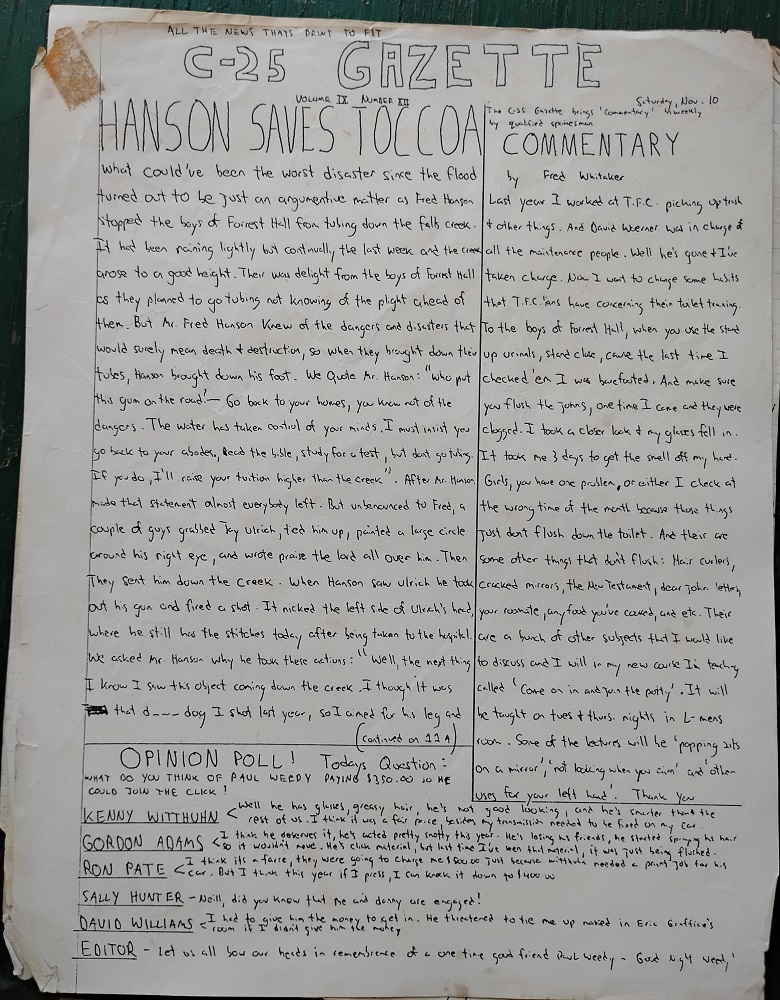 ALL THE NEWS THATS PRINT TO FIT
C-25 GAZETTE
VOLUME IX NUMBER XII
Saturday, Nov. 10
HANSON SAVES TOCCOA
What could've been the worst disaster since the flood
turned out to be just an argumentive matter as Fred Hanson
stopped the boys of Forrest Hall from tubing down the falls creek.
It had been raining lightly but continually, the last week and the creek
arose to a good height. Their was delight from the boys of Forrest Hall
as they planned to go tubing not knowing of the plight ahead of
them. But Mr. Fred Hanson knew of the dangers and disasters that
would surely mean death & destruction, so when they brought down their
tubes, Hanson brought down his foot. We Quote Mr. Hanson: "Who put
this gum on the road! — Go back to your homes, you know not of the
dangers. The water has taken control of your minds. I must insist you
go back to your abodes, Read the bible, study for a test, but don't go tubing.
If you do, I'll raise your tuition higher than the creek". After Mr. Hanson
made that statement almost everybody left. But unbenounced to Fred, a
couple of guys grabbed Jay Ulrich, tied him up, painted a large circle
around his right eye, and wrote praise the lord all over him. Then
They sent him down the creek. When Hanson saw Ulrich he took
out his gun and fired a shot. It nicked the left side of Ulrich's head,
where he still has the stitches today after being taken to the hospital.
We asked Mr. Hanson why he took these actions: "Well, the next thing
I know I saw this object coming down the creek. I though it was
that d--- dog I shot last year, so I aimed for his leg and
(continued on 12A)
The C-25 Gazette brings 'Commentary'
by qualified spokesman
COMMENTARY
by Fred Whitaker
Last year I worked at T.F.C. picking up trash
& other things. And David Woerner was in charge of
all the maintenance people. Well he's gone & I've
taken charge. Now I want to change some habits
that T.F.C.'ians have concerning their toilet training.
To the boys of Forrest Hall, when you use the stand
up urinals, stand close, cause the last time I
checked 'em I was barefooted. And make sure
you flush the johns, one time I came and they were
clogged. I took a closer look & my glasses fell in.
It took me 3 days to get the smell off my hand.
Girls, you have one problem, or either I check at
the wrong time of the month because those things
just don't flush down the toilet. And their are
some other things that don't flush: Hair curlers,
cracked mirrors, the New Testament, dear john letters,
your roomate, any food you've cooked, and etc. Their
are a bunch of other subjects that I would like
to discuss and I will in my new course I'm teaching
called 'Come on in and join the potty'. It will
be taught on tues & thurs. nights in L-mens
room. Some of the lectures will be 'popping zits
on a mirror', 'not looking when you aim' and 'other
uses for your left hand'. Thank you
OPINION POLL! Todays Question:
WHAT DO YOU THINK OF PAUL WEEDY PAYING $350.00 SO HE
COULD JOIN THE CLICK!
KENNY WITTHUHN < Well he has glasses, greasy hair, he's not good looking, and he's smarter than the
rest of us. I think it was a fair price, besides my transmission needed to be fixed on my car.
GORDON ADAMS < I think he deserves it, he's acted pretty snotty this year. He's losing his friends, he started spraying his hair
so it wouldn't move. He's click material, but last time I've seen that material, it was just being flushed.
RON PATE < I think its a farce, they were going to charge me $600.00 just because witthuhn needed a paint job for his
car. But I think this year if I press, I can knock it down to $400.00
SALLY HUNTER - Neill, did you know that me and donny are engaged!
DAVID WILLIAMS < I had to give him the money to get in. He threatened to tie me up naked in Eric Graffice's
room if I didn't give him the money
EDITOR - Let us all bow our heads in remembrence of a one time good friend Paul Weedy - Good Night Weedy!